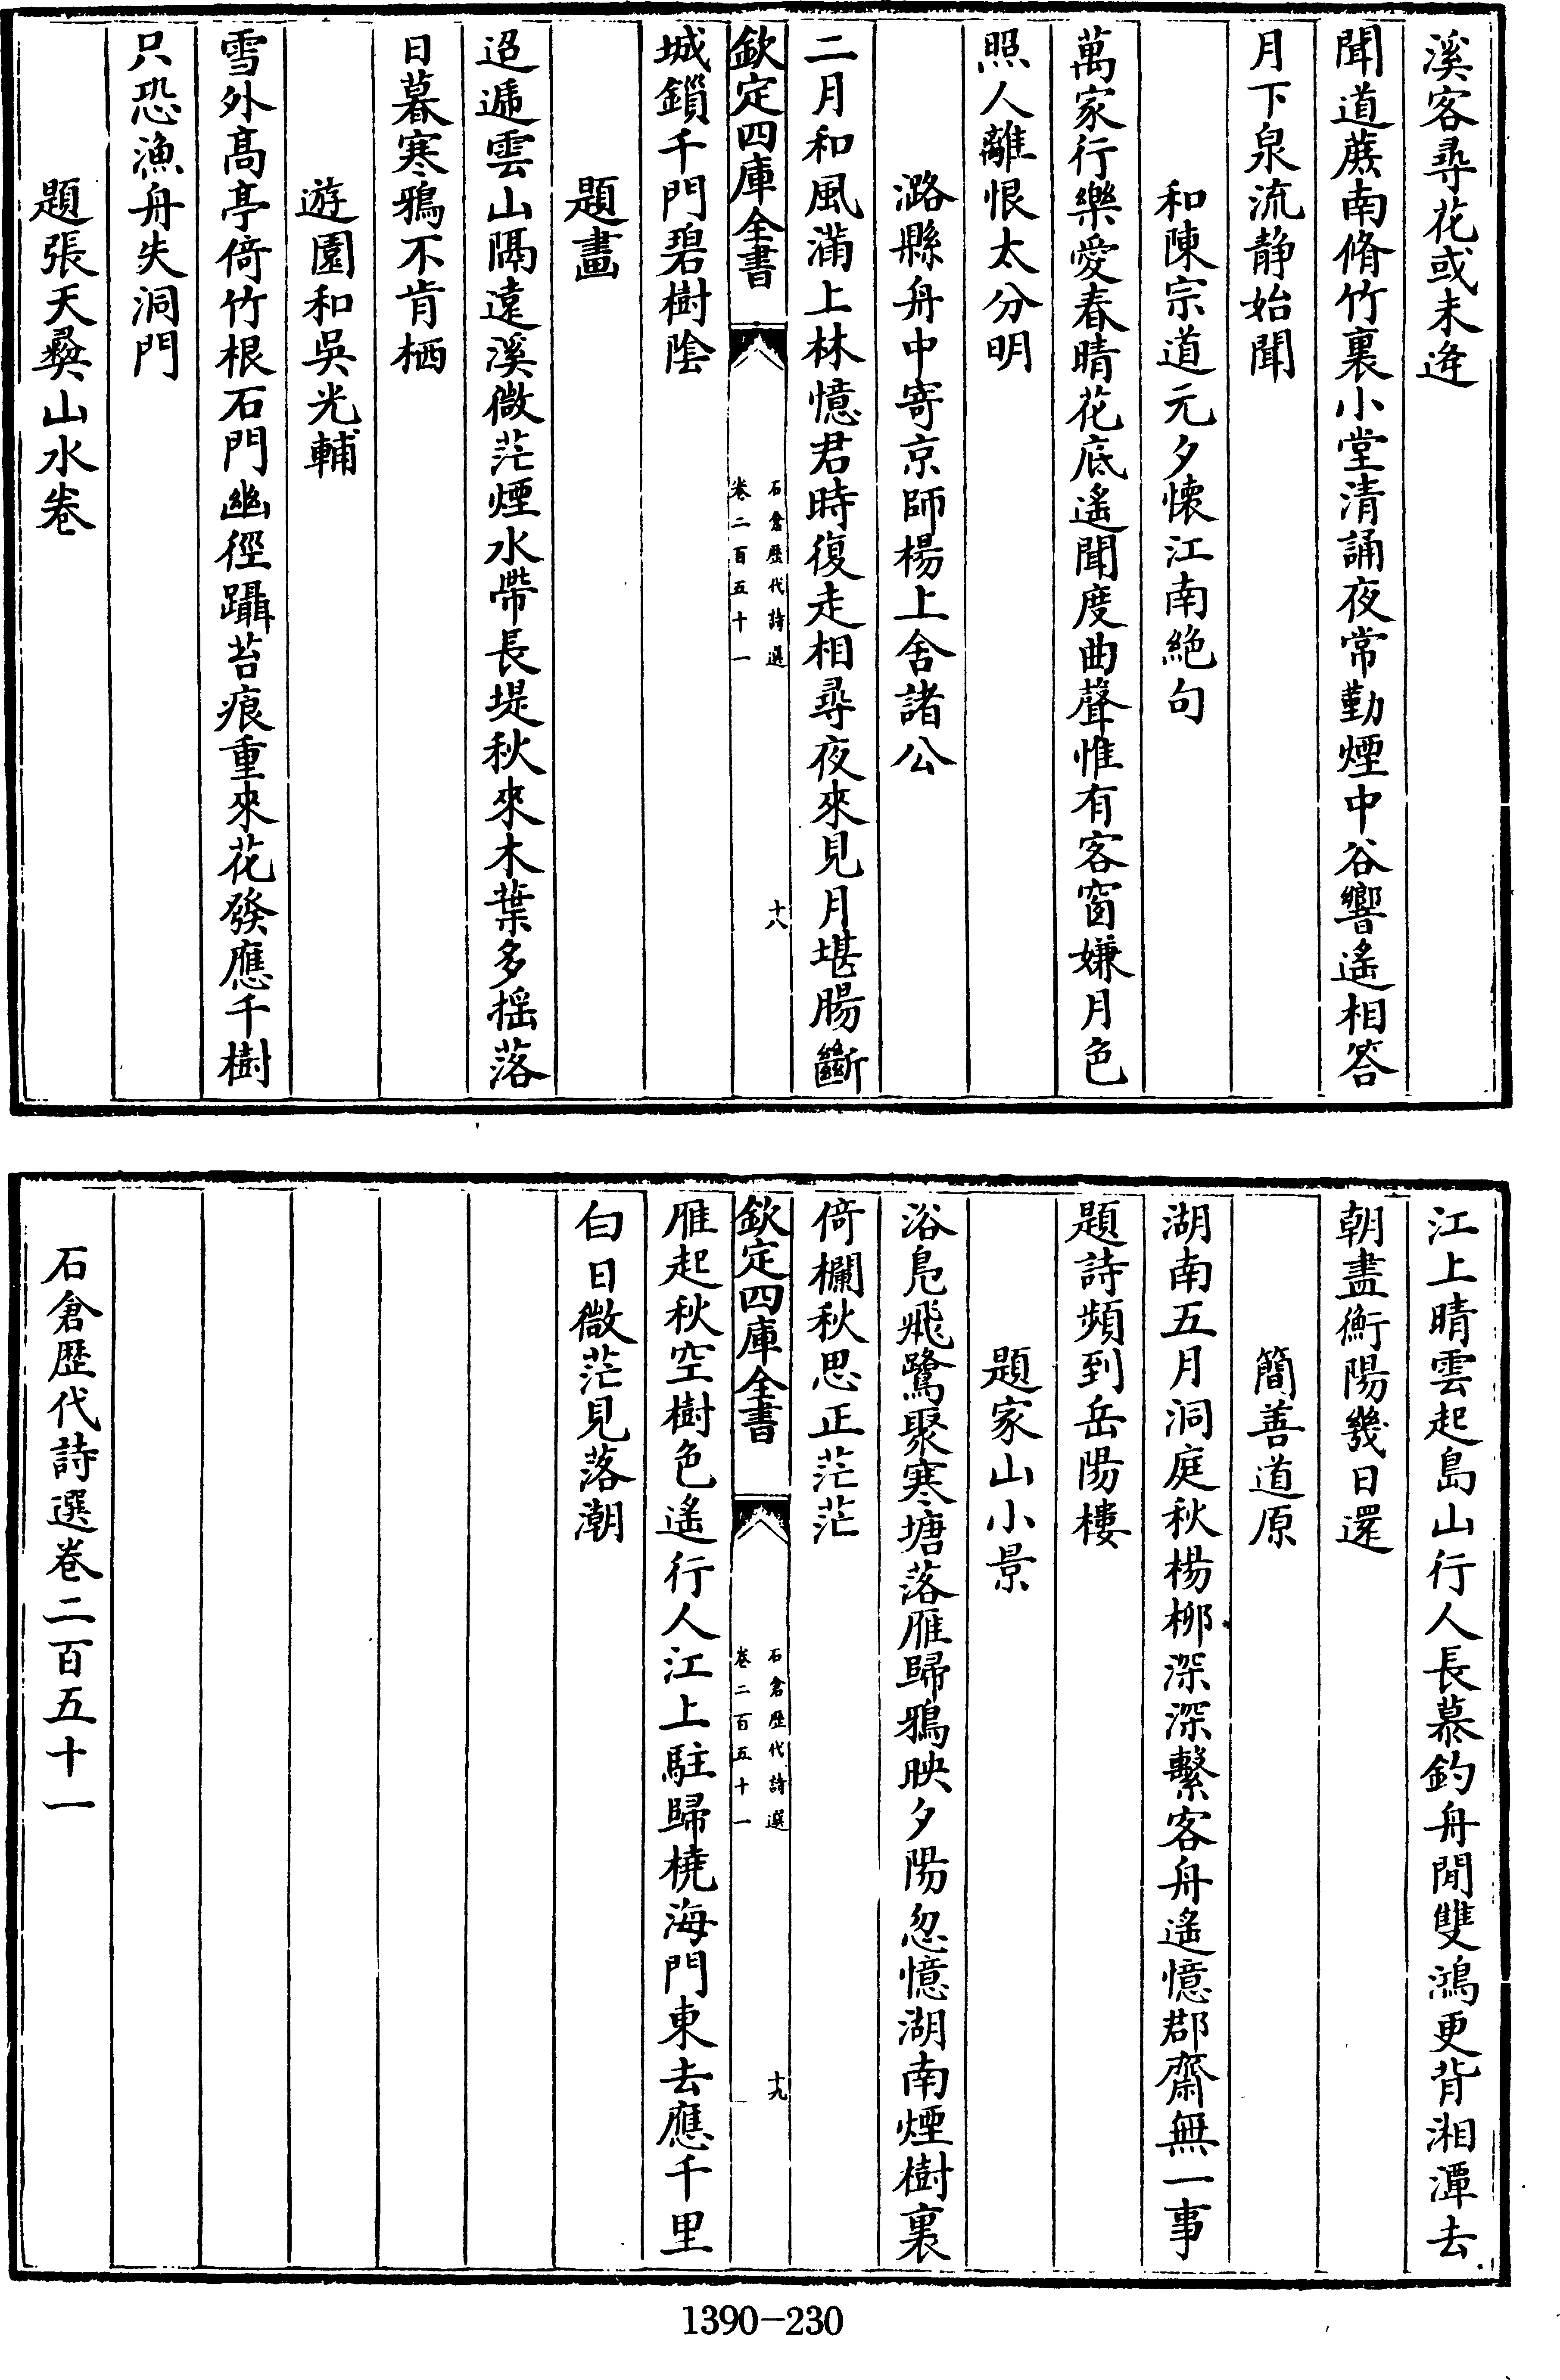 溪客尋花或未逢
聞道蔗南脩竹裏小堂清誦夜常勤煙中谷響遙相答
月下泉流静始聞
和陳宗道元夕懷江南絶句
萬家行樂愛春晴花底遙聞度曲聲惟有客窗嫌月色
照人離恨太分明
潞縣舟中寄京師楊上舍諸公
二月和風滿上林憶君時復走相尋夜來見月堪腸斷
欽定四庫全書
石倉歷代詩選
卷二百五十一
十八
城鎖千門碧樹陰
題畫
迢遞雲山隔遠溪微茫煙水帶長堤秋來木葉多揺落
日暮寒鴉不肯栖
遊園和吳光輔
雪外高亭倚竹根石門幽徑躡苔痕重來花發應千樹
只恐漁舟失洞門
題張天彝山水卷
江上晴雲起島山行人長慕釣舟閒雙鴻更背湘潭去
朝盡衡陽幾日還
簡善道原
湖南五月洞庭秋楊柳深深繫客舟遙憶郡齋無一事
題詩頻到岳陽樓
題家山小景
浴鳧飛鷺聚寒塘落雁歸鴉映夕陽忽憶湖南煙樹裏
倚欄秋思正茫茫
欽定四庫全書
石倉歷代詩選
卷二百五十一
十九
雁起秋空樹色遙行人江上駐歸橈海門東去應千里
白日微茫見落潮
石倉歷代詩選卷二百五十一
1390-230